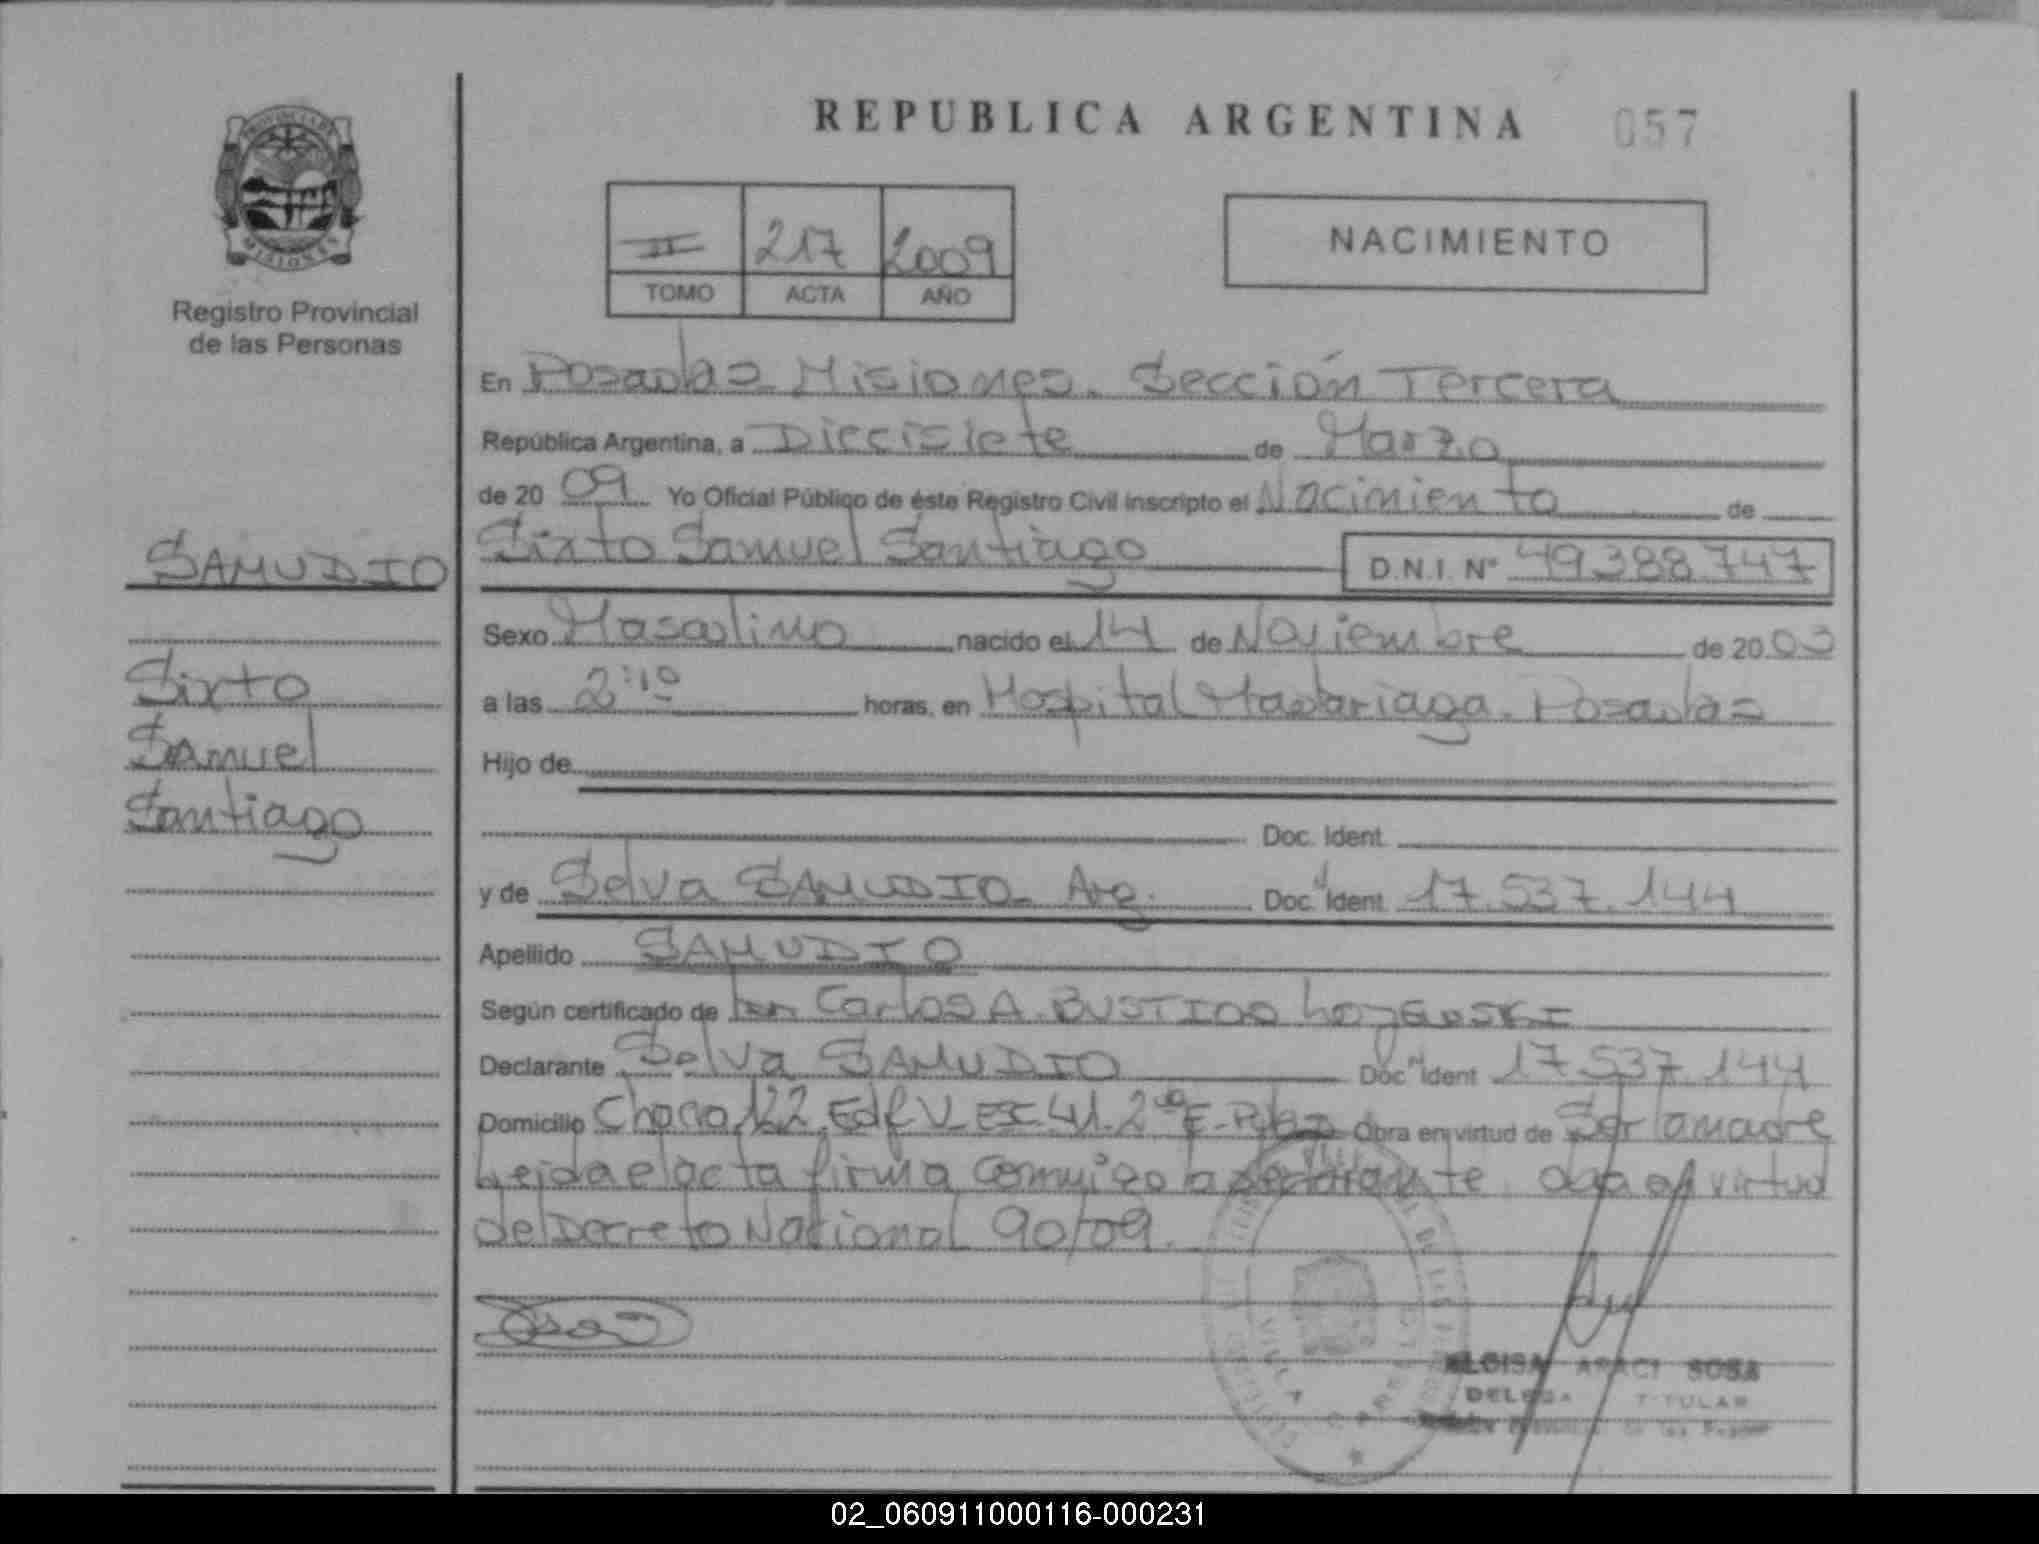 REPUBLICA ARGENTINA
057
PROVINCIA DE
MISIONES
Registro Provincial
de las Personas
II 217 2009
TOMO ACTA AÑO
NACIMIENTO
En Posadas Misiones. Sección Tercera
República Argentina, a Diecisiete de Marzo
de 20 09 Yo Oficial Público de éste Registro Civil inscripto el Nacimiento de
Sixto Samuel Santiago D.N.I. N° 49.388.747
SAMUDIO
Sexo Masculino nacido el 14 de Noviembre de 20 03
Sixto
a las 2:10 horas, en Hospital Madariaga. Posadas
Samuel
Hijo de
Santiago
Doc. Ident.
y de Selva SAMUDIO. Arg. Doc. Ident. 17.537.144
Apellido SAMUDIO
Según certificado de Carlos A. BUSTIDO
Declarante Selva SAMUDIO Doc. Ident 17.537.144
Domicilio Chaco 122. Edf V_ Esc. 41. 2° E- Obra en virtud de Ser la madre
Leida el acta firma conmigo la declarante. Obra en virtud
del Decreto National 90/09.
VILLA CABELLO
ELOISA ARACI SOSA
DELEGADA TITULAR
de las Personas
02_060911000116-000231